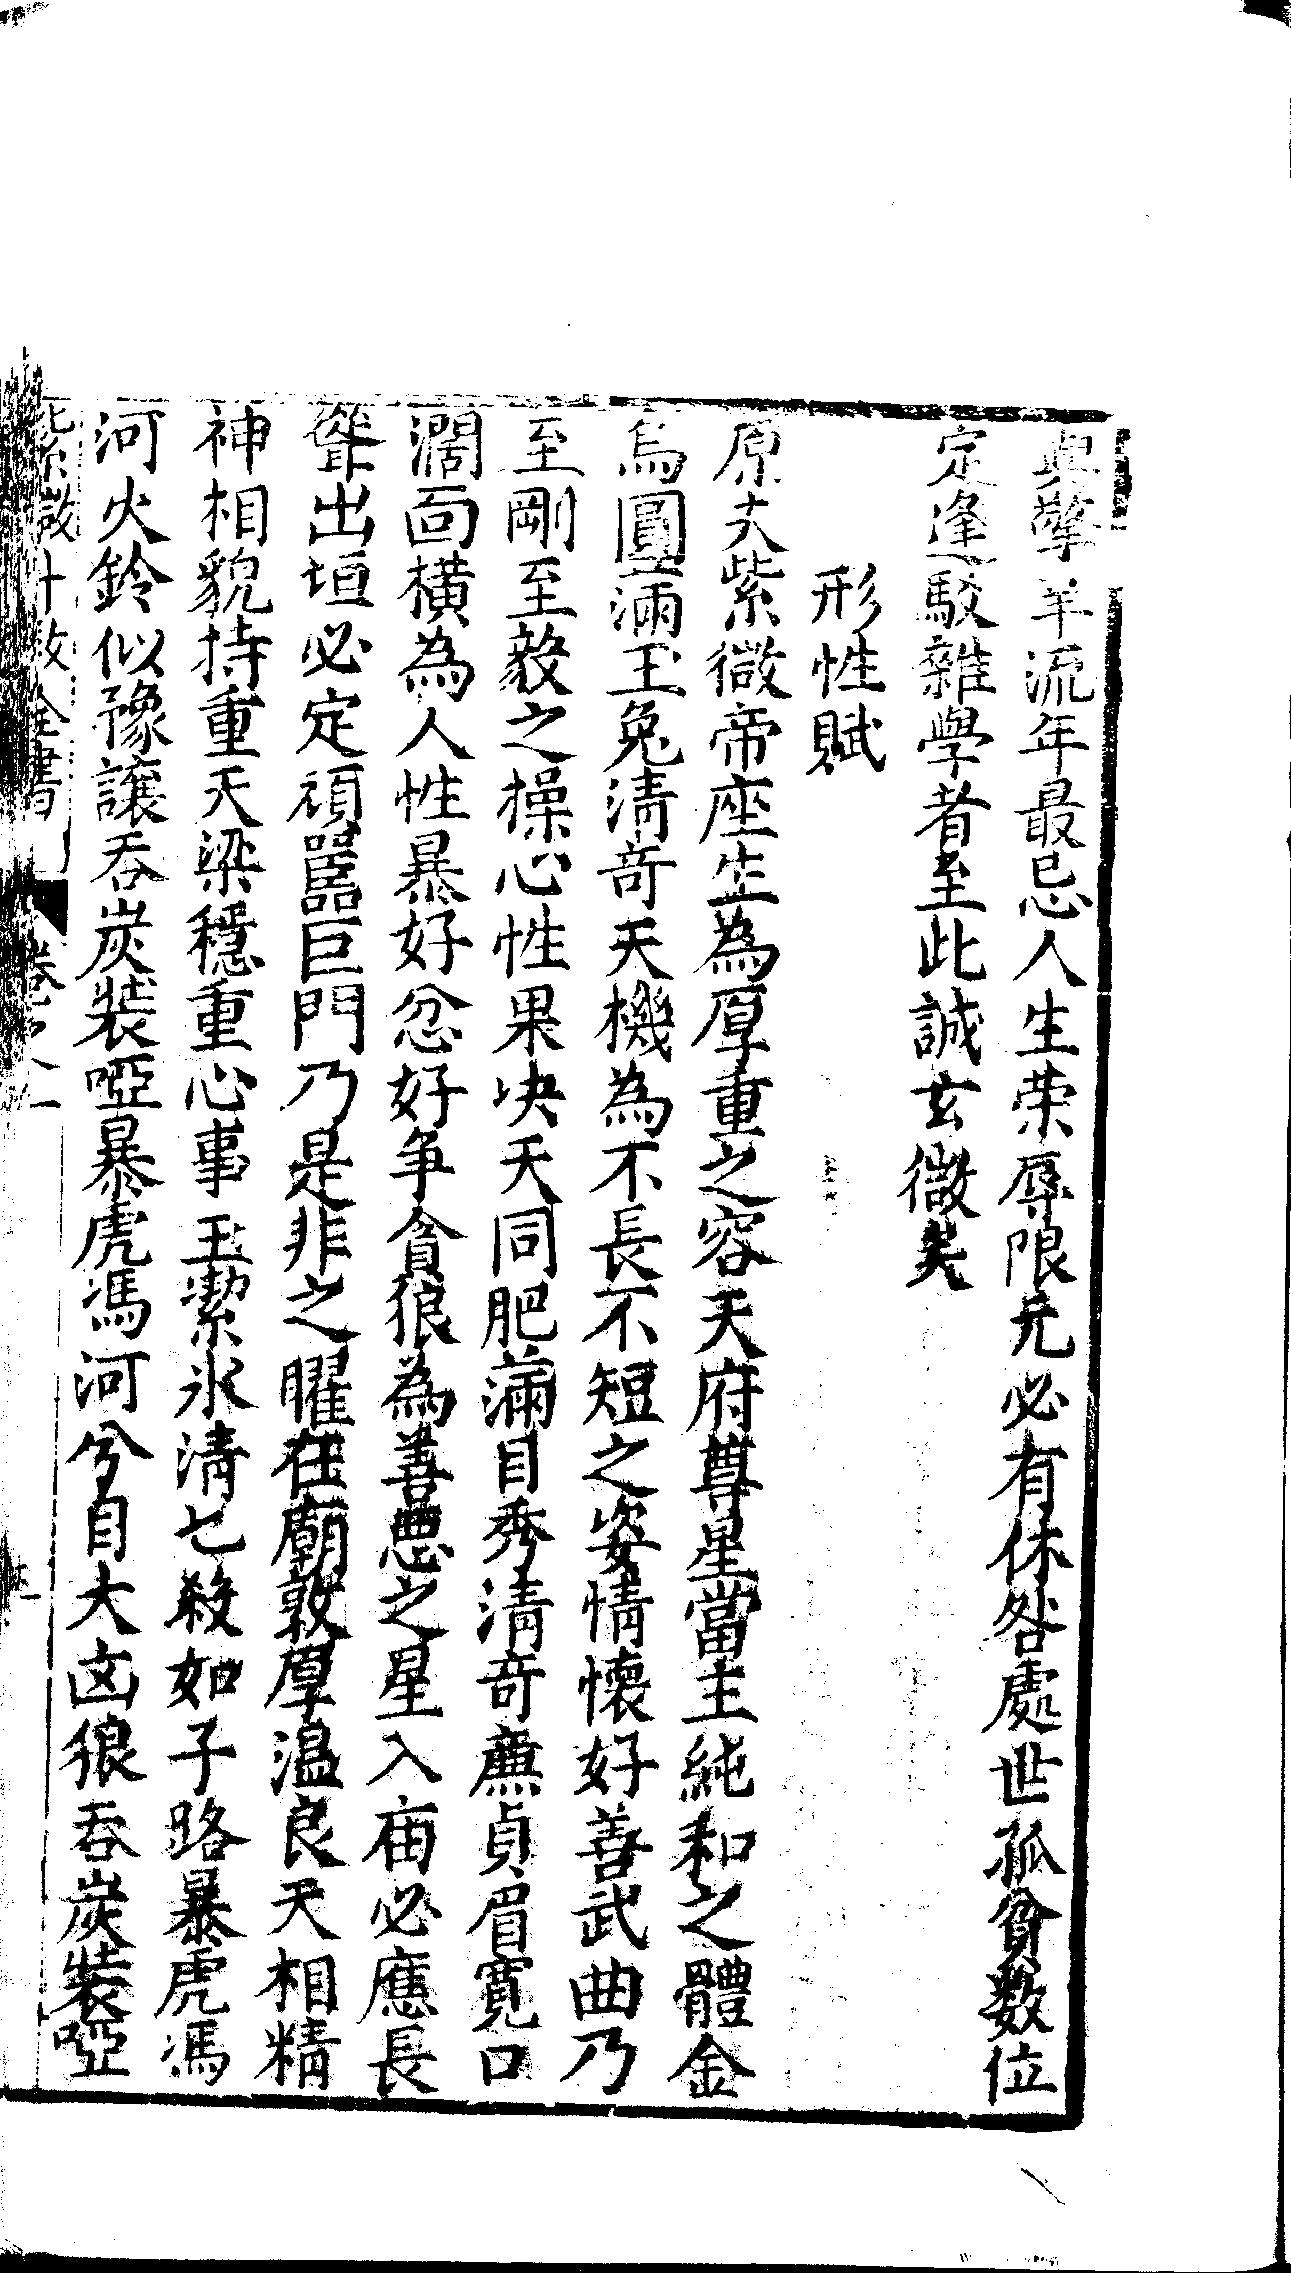 與擎羊流年最忌人生荣辱限元必有休咎處世孤貧数位
定逢駁雜學者至此誠玄微矣
形性賦
原夫紫微帝座生為厚重之容天府尊星當主純和之體金
烏圓滿玉兔清奇天機為不長不短之姿情懷好善武曲乃
至剛至毅之操心性果决天同肥滿目秀清奇廉貞眉寬口
濶面橫為人性暴好忿好争貪狼為善悪之星入庙必應長
聳出垣必定頑嚚巨門乃是非之曜在廟敦厚温良天相精
神相貌持重天梁穩重心事玉潔氷清七殺如子路暴虎馮
河火鈴似豫讓吞炭裝啞暴虎馮河兮目大凶狼吞炭裝啞
紫微斗数全書 卷之一